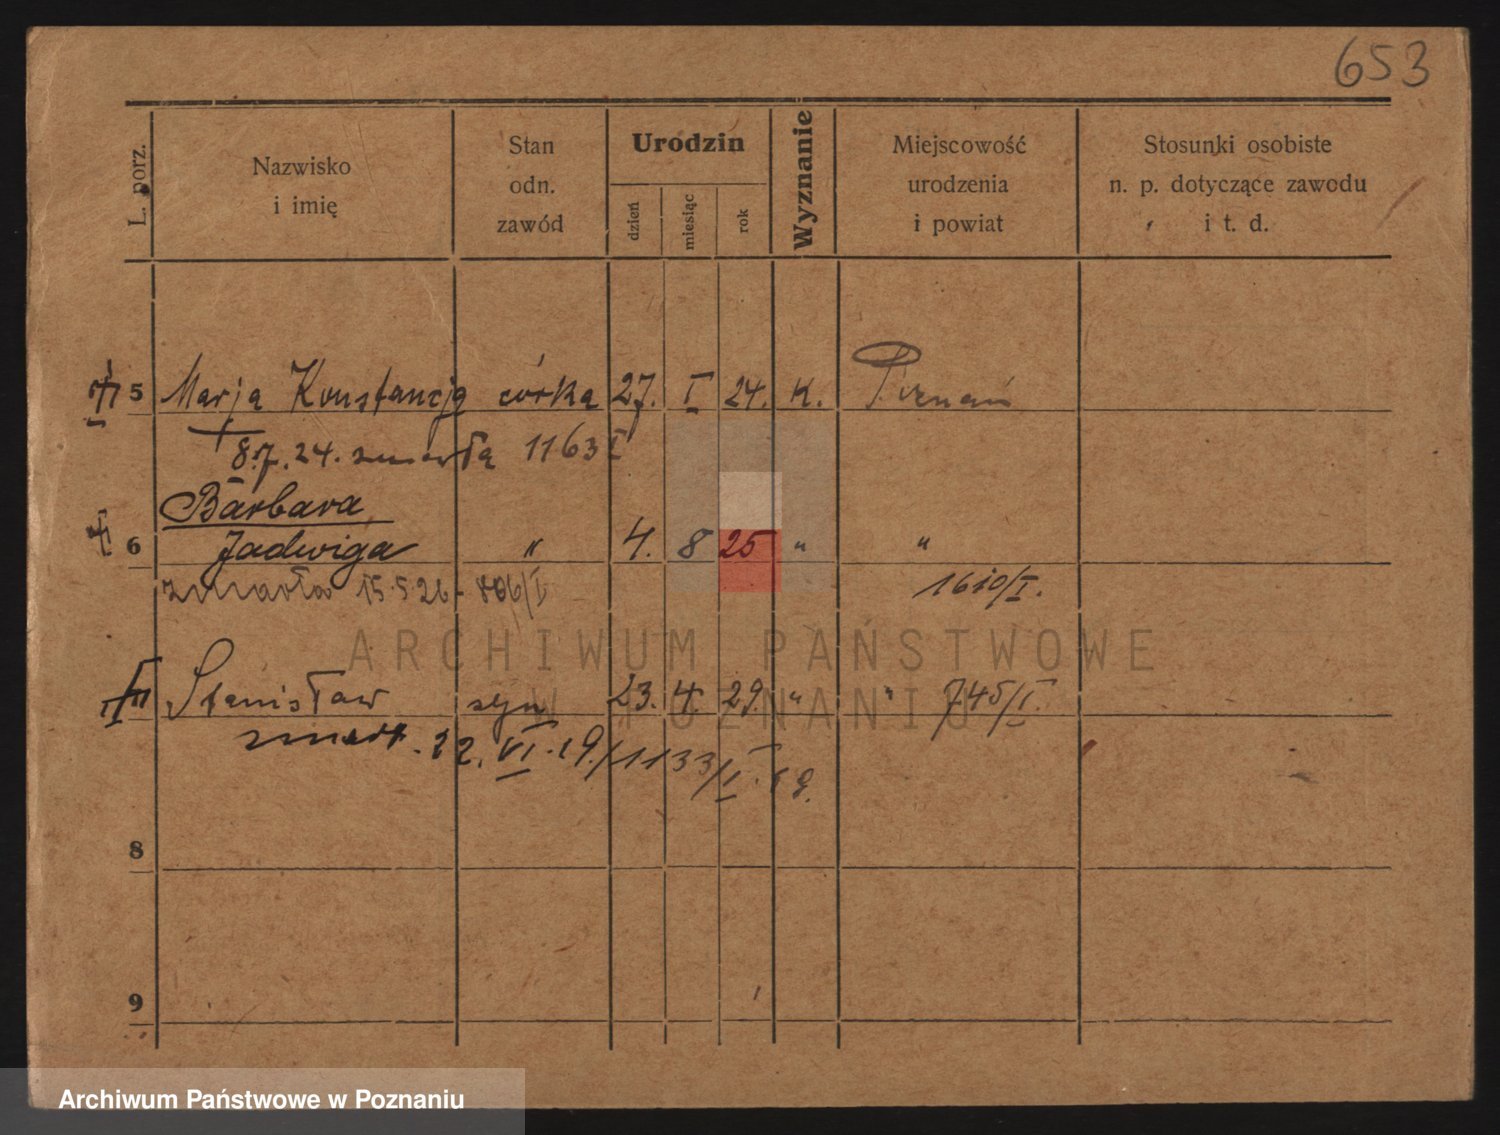 653
L. porz.
Nazwisko
i imię
Stan
odn.
zawód
Urodzin
dzień
miesiąc
rok
Wyznanie
Miejscowość
urodzenia
i powiat
Stosunki osobiste
n. p. dotyczące zawodu
i t. d.
5 Marja Konstancja córka 27. I 24. K. Poznań
8.7.24. zmarła 1163 I
Barbara
6 Jadwiga " 4. 8 25 " "
zmarła 15.5.26 - 806/I 1610/I.
Stanisław syn 23. 4. 29 " " 745/I.
zmarł. 22. VI. 29/1133/I. 29.
8
9
ARCHIWUM PAŃSTWOWE
W POZNANIU
Archiwum Państwowe w Poznaniu